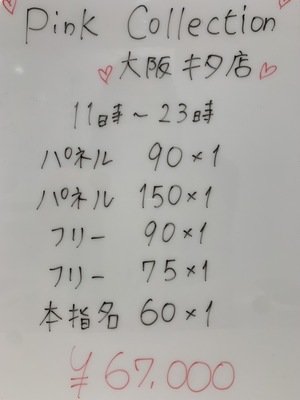 Pink Collection
大阪キタ店
11時～23時
パネル 90×1
パネル 150×1
フリー 90×1
フリー 75×1
本指名 60×1
¥67.000